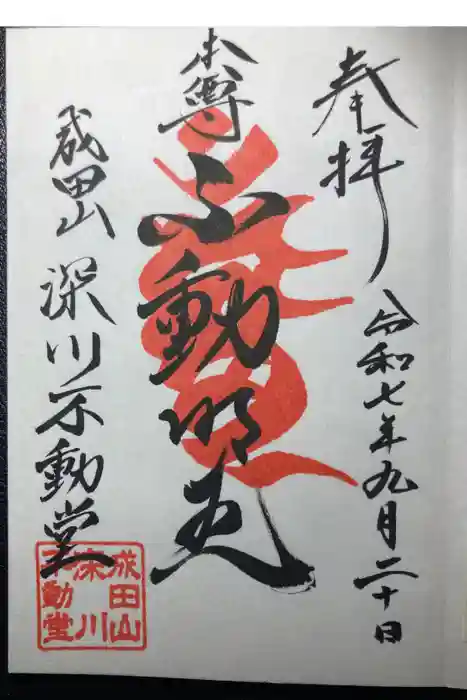 奉拝
令和七年九月二十日
本尊
不動明王
成田山
深川不動堂
成田山
深川
不動堂